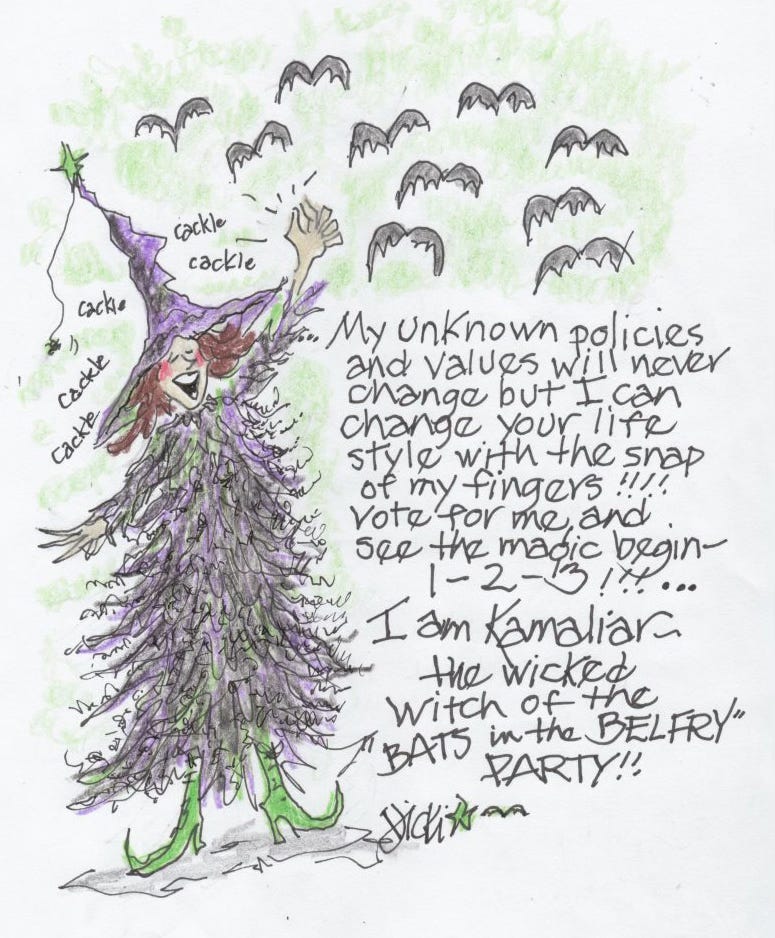 cackle
cackle
cackle
cackle
cackle
... My unknown policies
and values will never
change but I can
change your life
style with the snap
of my fingers !!!!
vote for me, and
see the magic begin~
1-2-3!!! ...
I am Kamaliar~
the wicked
witch of the
"BATS in the BELFRY"
PARTY!!